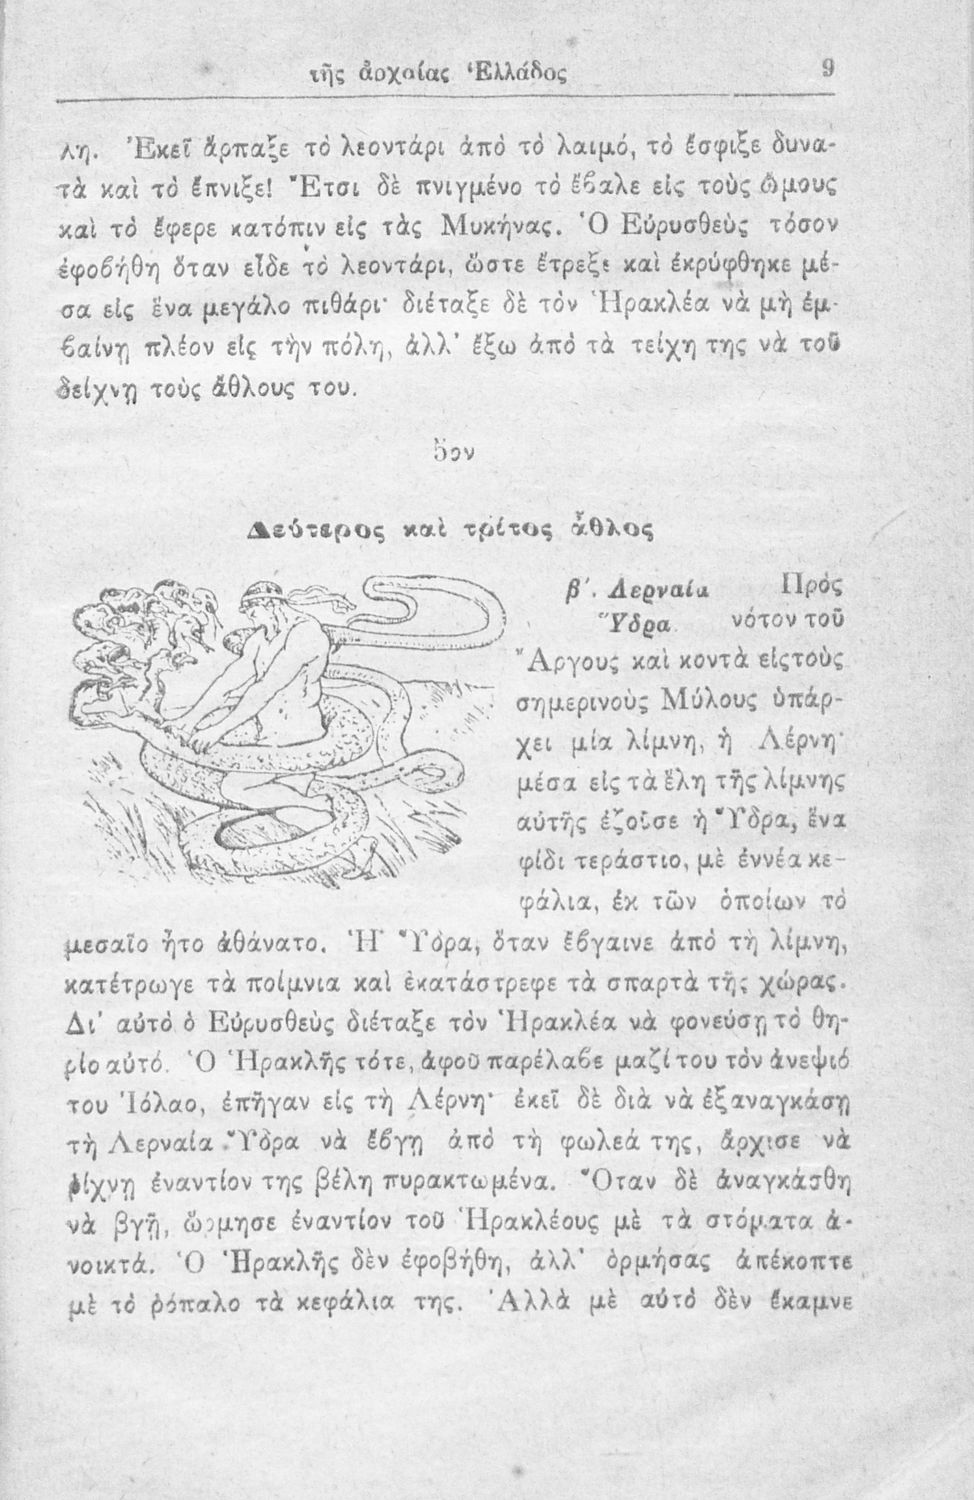 τῆς ἀρχαίας Ἑλλάδος 9
λη. Ἐκεῖ ἅρπαξε τὸ λεοντάρι ἀπὸ τὸ λαιμό, τὸ ἔσφιξε δυνα-
τὰ καὶ τὸ ἔπνιξε! Ἔτσι δὲ πνιγμένο τὸ ἔβαλε εἰς τοὺς ὤμους
καὶ τὸ ἔφερε κατόπιν εἰς τὰς Μυκήνας. Ὁ Εὐρυσθεὺς τόσον
ἐφοβήθη ὅταν εἶδε τὸ λεοντάρι, ὥστε ἔτρεξε καὶ ἐκρύφθηκε μέ-
σα εἰς ἕνα μεγάλο πιθάρι· διέταξε δὲ τὸν Ἡρακλέα νὰ μὴ ἐμ-
βαίνῃ πλέον εἰς τὴν πόλη, ἀλλ' ἔξω ἀπὸ τὰ τείχη της νὰ τοῦ
δείχνῃ τοὺς ἄθλους του.
5ον
Δεύτερος καὶ τρίτος ἆθλος
β'. Λερναία Πρὸς
Ὕδρα νότον τοῦ
Ἄργους καὶ κοντὰ εἰςτοὺς
σημερινοὺς Μύλους ὑπάρ-
χει μία λίμνη, ἡ Λέρνη·
μέσα εἰς τὰ ἕλη τῆς λίμνης
αὐτῆς ἐζοῦσε ἡ Ὕδρα, ἕνα
φίδι τεράστιο, μὲ ἐννέα κε-
φάλια, ἐκ τῶν ὁποίων τὸ
μεσαῖο ἦτο ἀθάνατο. Ἡ Ὕδρα, ὅταν ἔβγαινε ἀπὸ τὴ λίμνη,
κατέτρωγε τὰ ποίμνια καὶ ἐκατάστρεφε τὰ σπαρτὰ τῆς χώρας.
Δι' αὐτὸ ὁ Εὐρυσθεὺς διέταξε τὸν Ἡρακλέα νὰ φονεύσῃ τὸ θη-
ρίο αὐτό. Ὁ Ἡρακλῆς τότε, ἀφοῦ παρέλαβε μαζί του τὸν ἀνεψιό
του Ἰόλαο, ἐπῆγαν εἰς τὴ Λέρνη· ἐκεῖ δὲ διὰ νὰ ἐξαναγκάσῃ
τὴ Λερναία Ὕδρα νὰ ἔβγῃ ἀπὸ τὴ φωλεά της, ἄρχισε νὰ
ρίχνῃ ἐναντίον της βέλη πυρακτωμένα. Ὅταν δὲ ἀναγκάσθη
νὰ βγῇ, ὥρμησε ἐναντίον τοῦ Ἡρακλέους μὲ τὰ στόματα ἀ-
νοικτά. Ὁ Ἡρακλῆς δὲν ἐφοβήθη, ἀλλ' ὁρμήσας ἀπέκοπτε
μὲ τὸ ρόπαλο τὰ κεφάλια της. Ἀλλὰ μὲ αὐτὸ δὲν ἔκαμνε